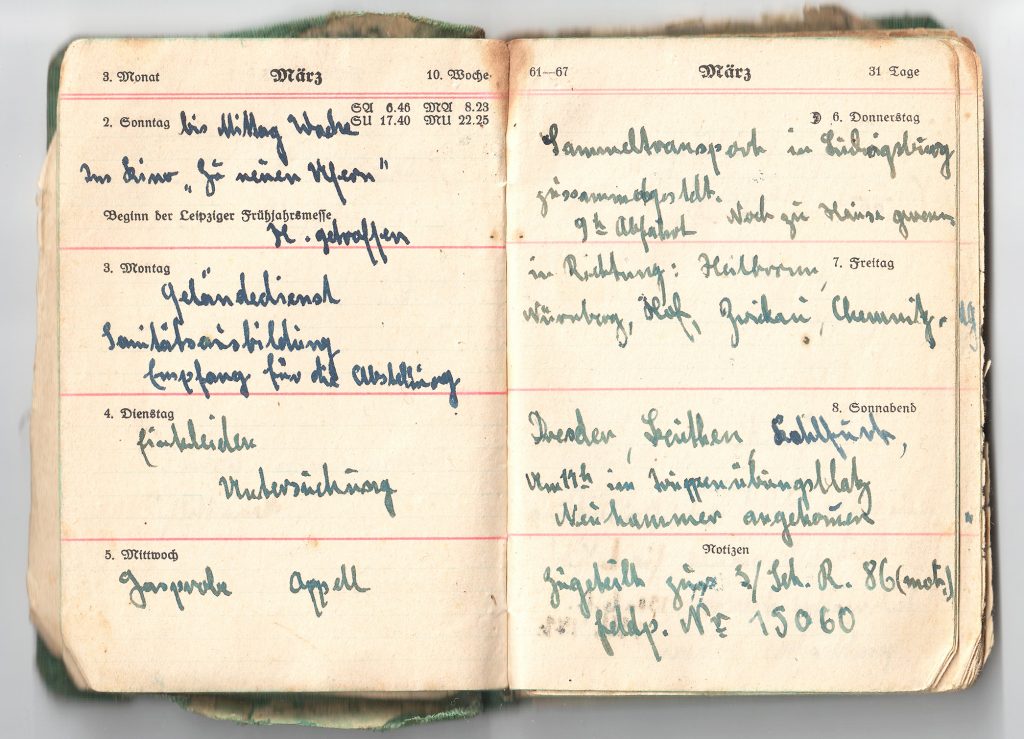 3. Monat März 10. Woche
SA 6.46 MA 8.23
2. Sonntag bis Mittag Wache SU 17.40 MU 22.25
Ins Kino „Zu neuen Ufern"
Beginn der Leipziger Frühjahrsmesse
H. getroffen
3. Montag
Geländedienst
Sanitätsausbildung
Empfang für die Abstellung
4. Dienstag
Einkleiden
Untersuchung
5. Mittwoch
Gasprobe Appell
61—67 März 31 Tage
6. Donnerstag
Sammeltransport in Ludwigsburg
zusammengestellt.
9h Abfahrt Noch zu Hause gewesen
7. Freitag
in Richtung: Heilbronn,
Nürnberg, Hof, Zwickau, Chemnitz.
8. Sonnabend
Dresden, Leuthen, Kohlfurt,
Um 19h im Truppenübungsplatz
Neuhammer angekommen
Notizen
Zugeteilt zur /Sch. R. 86 (mot.)
Feldp. Nr 15060